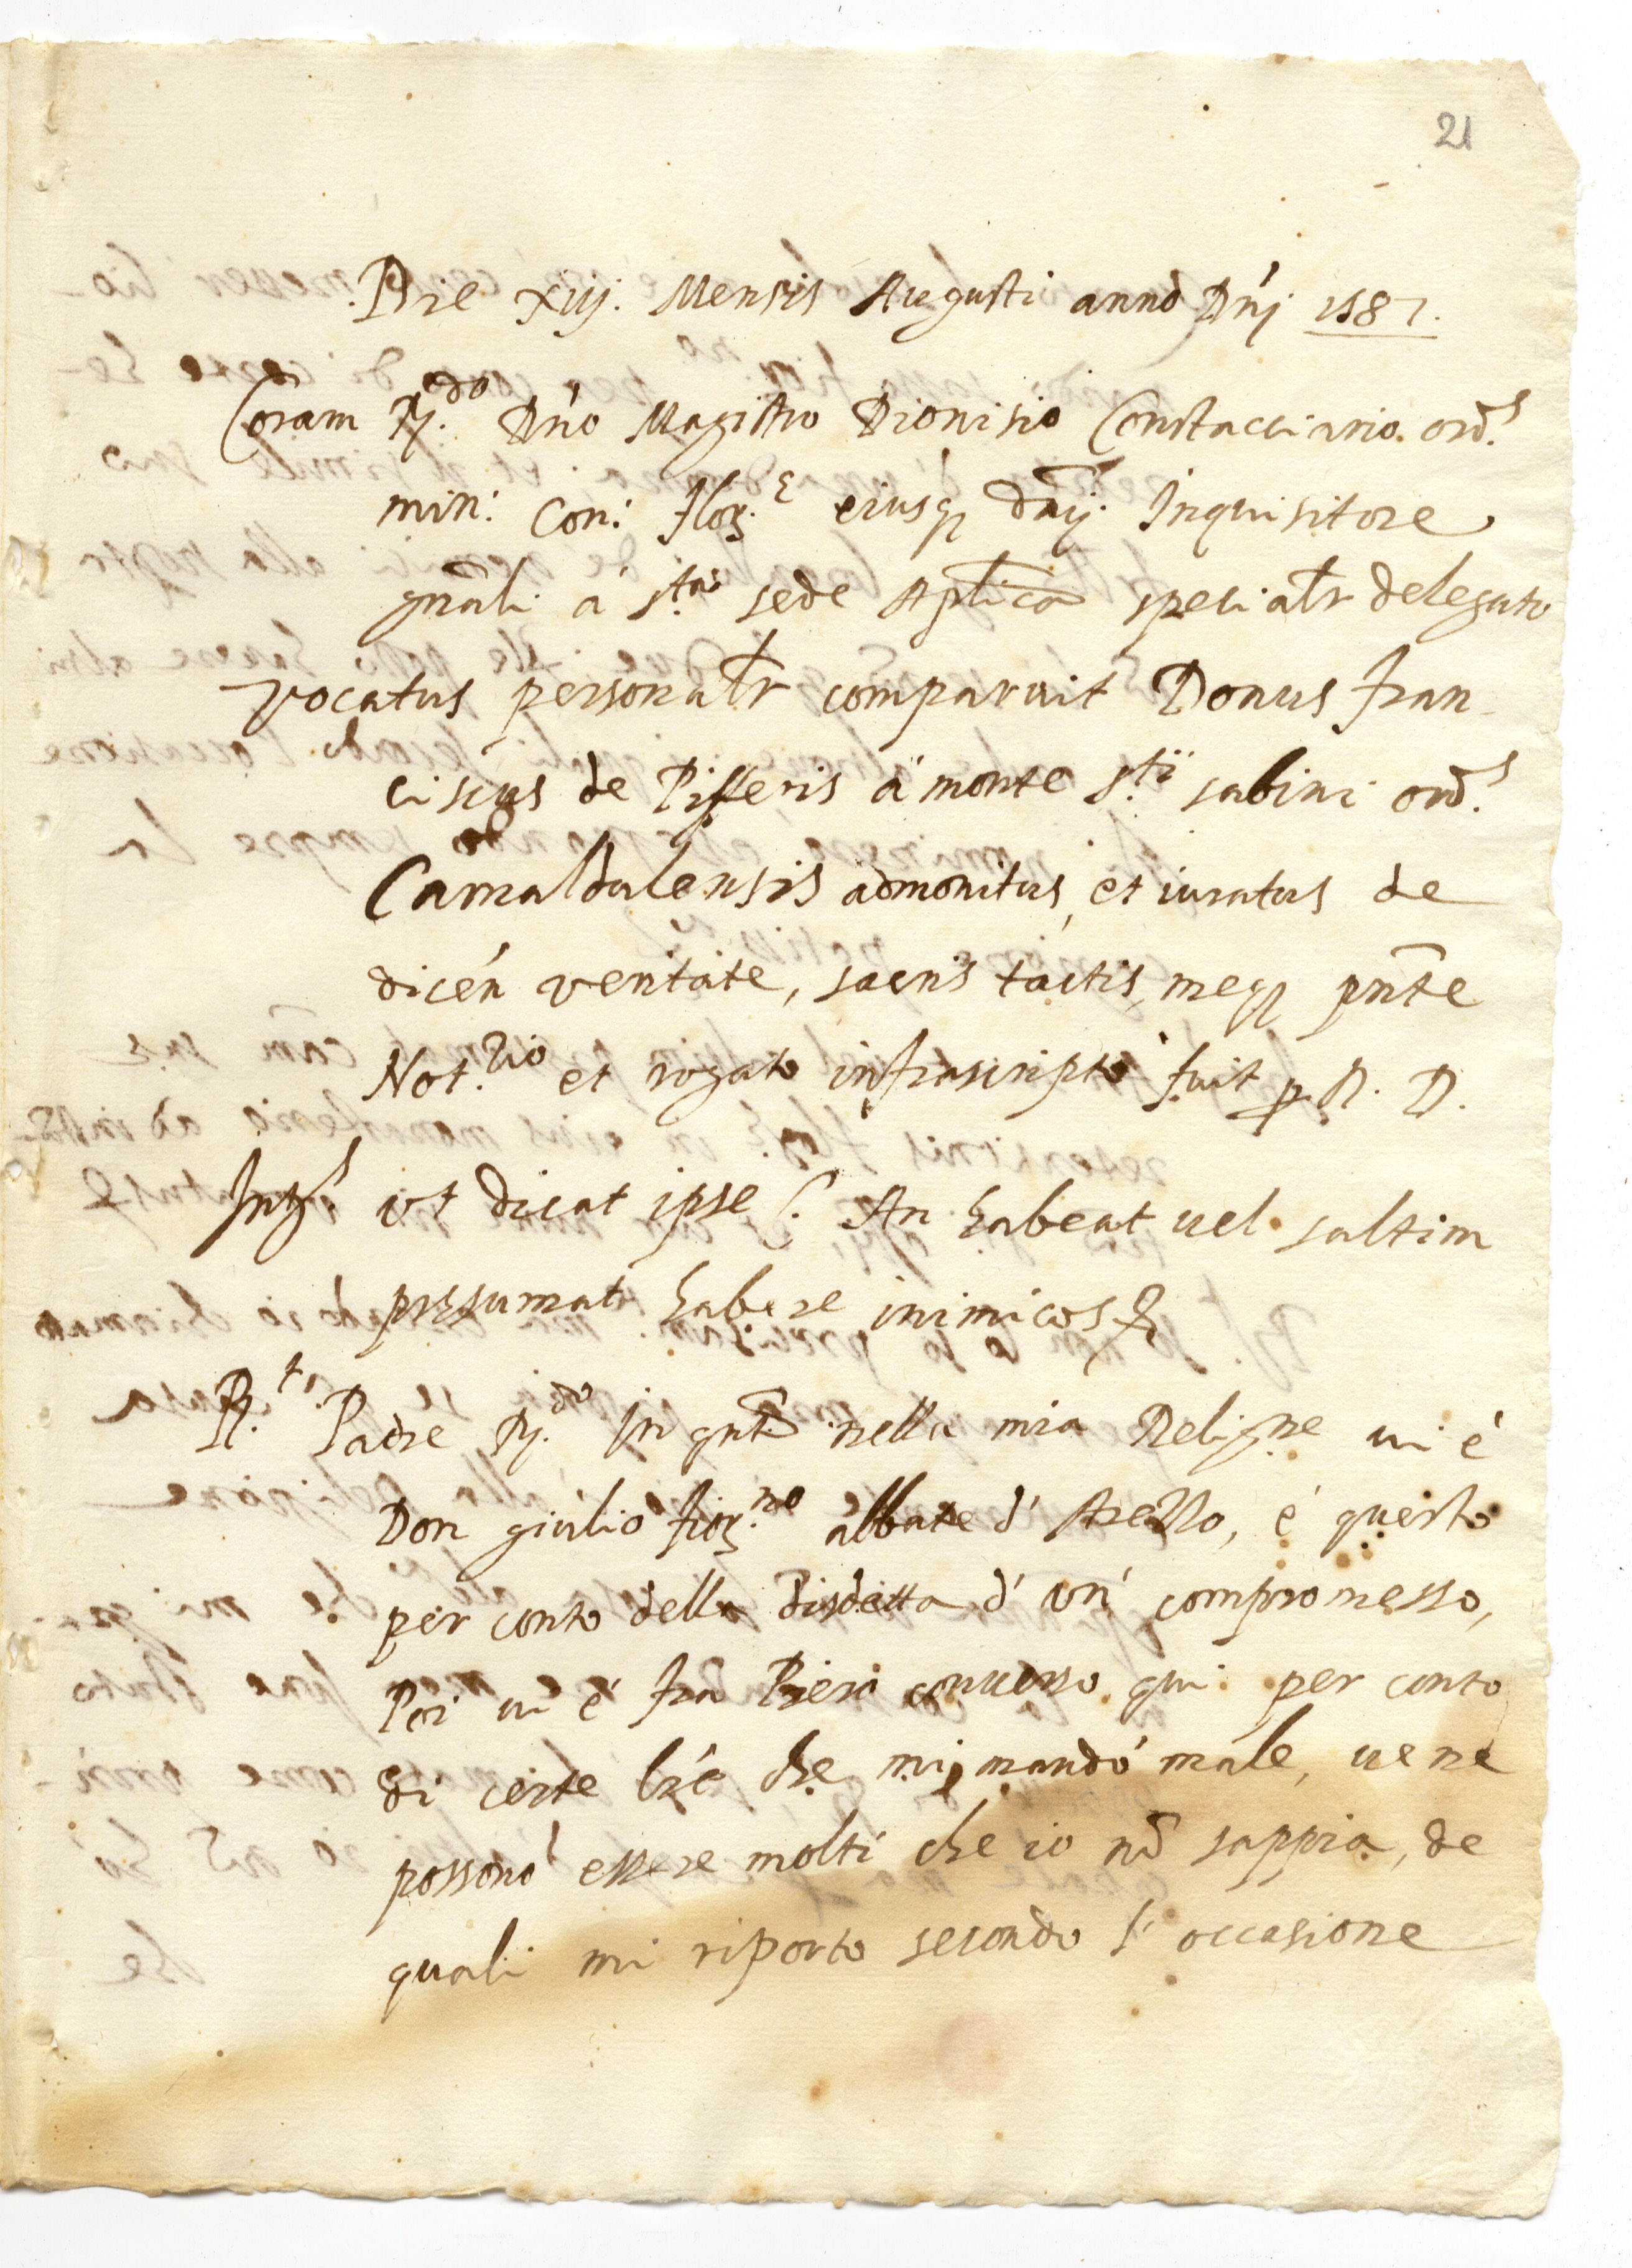 21
Die xiij. Mensis Augusti anno Dnj 1587.
Coram R.do Dno Magistro Dionisio Constacciario ord.s
min: Con: flor.e eiusq dnij. Inquisitore
gnali à s.ta sede Aplica specialr delegato
vocatus personalr comparuit Donus fran
ciscus de Pifferis à monte S.ti sabini ord.s
Camaldulensis admonitus, et iuratus de
dicen veritate, sacris tactis, meq pnte
Not.rio et rogato infrascripto fuit p R. D.
Int.s vt dicat ipse C. An habeat uel saltim
presumat habere inimicos &
R.t Padre R.do In gnt nella mia Religne ui é
Don giulio fior.no abbate d' Arezzo, é questo
per conto della disdetta d' un' compromesso,
Poi ui é fra Piero conuerso qui per conto
di certe lre che mi mandó male, ue ne
possono essere molti che io nō sappia, de
quali mi riporto secondo l' occasione